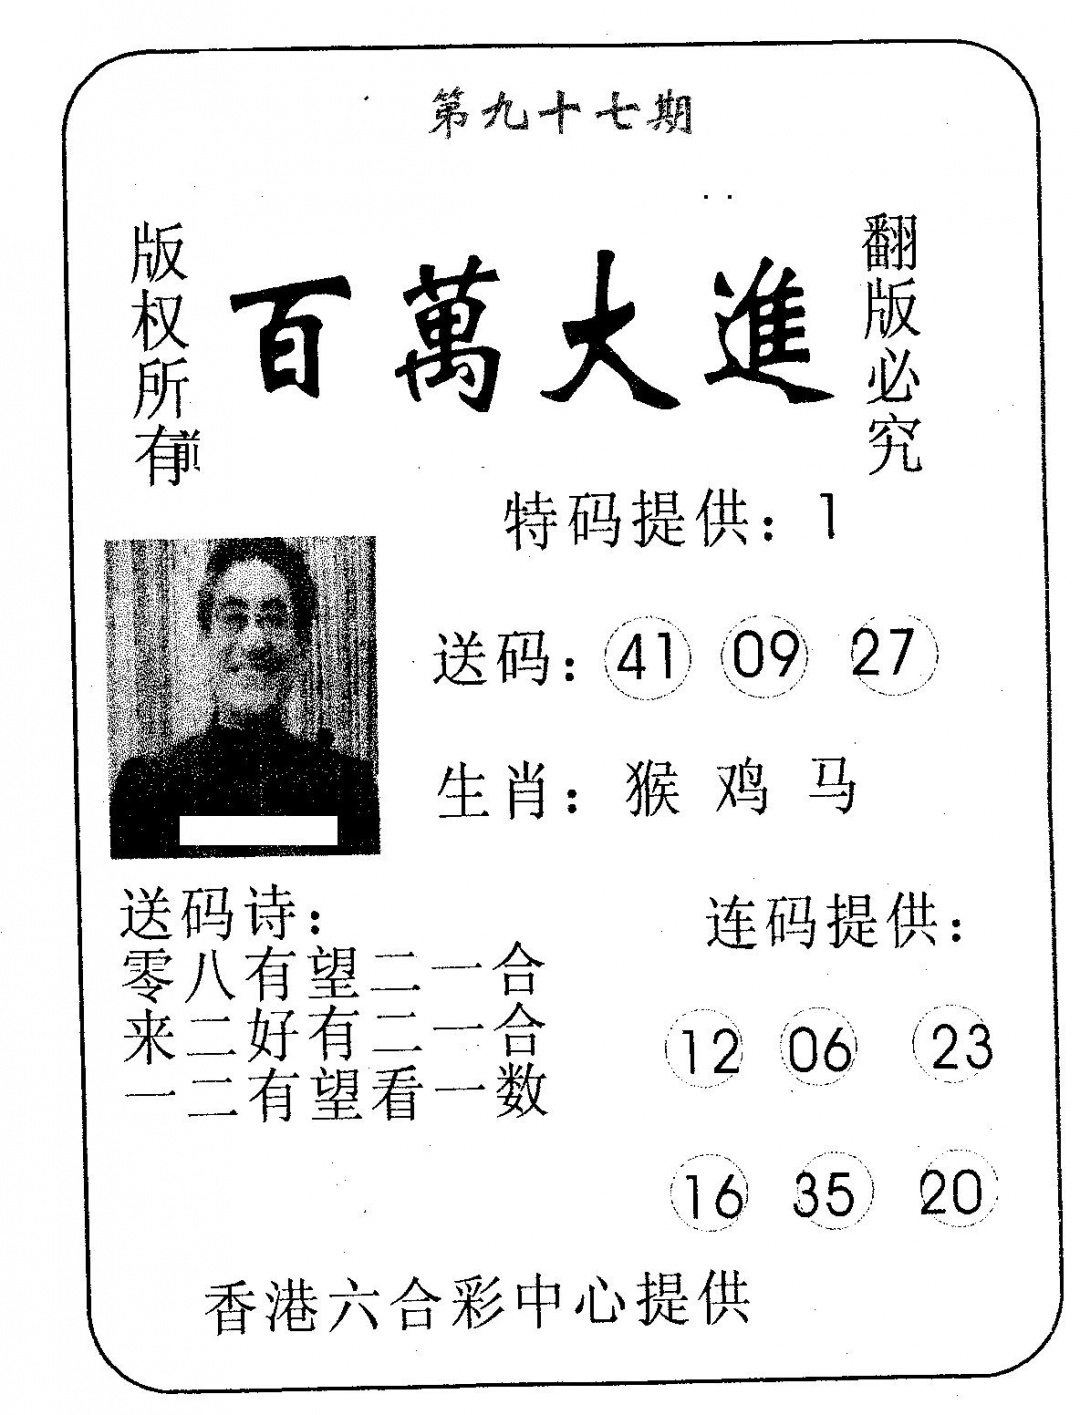 第九十七期
版权所有
百萬大進
翻版必究
特码提供：1
送码：41 09 27
生肖：猴 鸡 马
送码诗：
零八有望二一合
来二好有二一合
一二有望看一数
连码提供：
12 06 23
16 35 20
香港六合彩中心提供